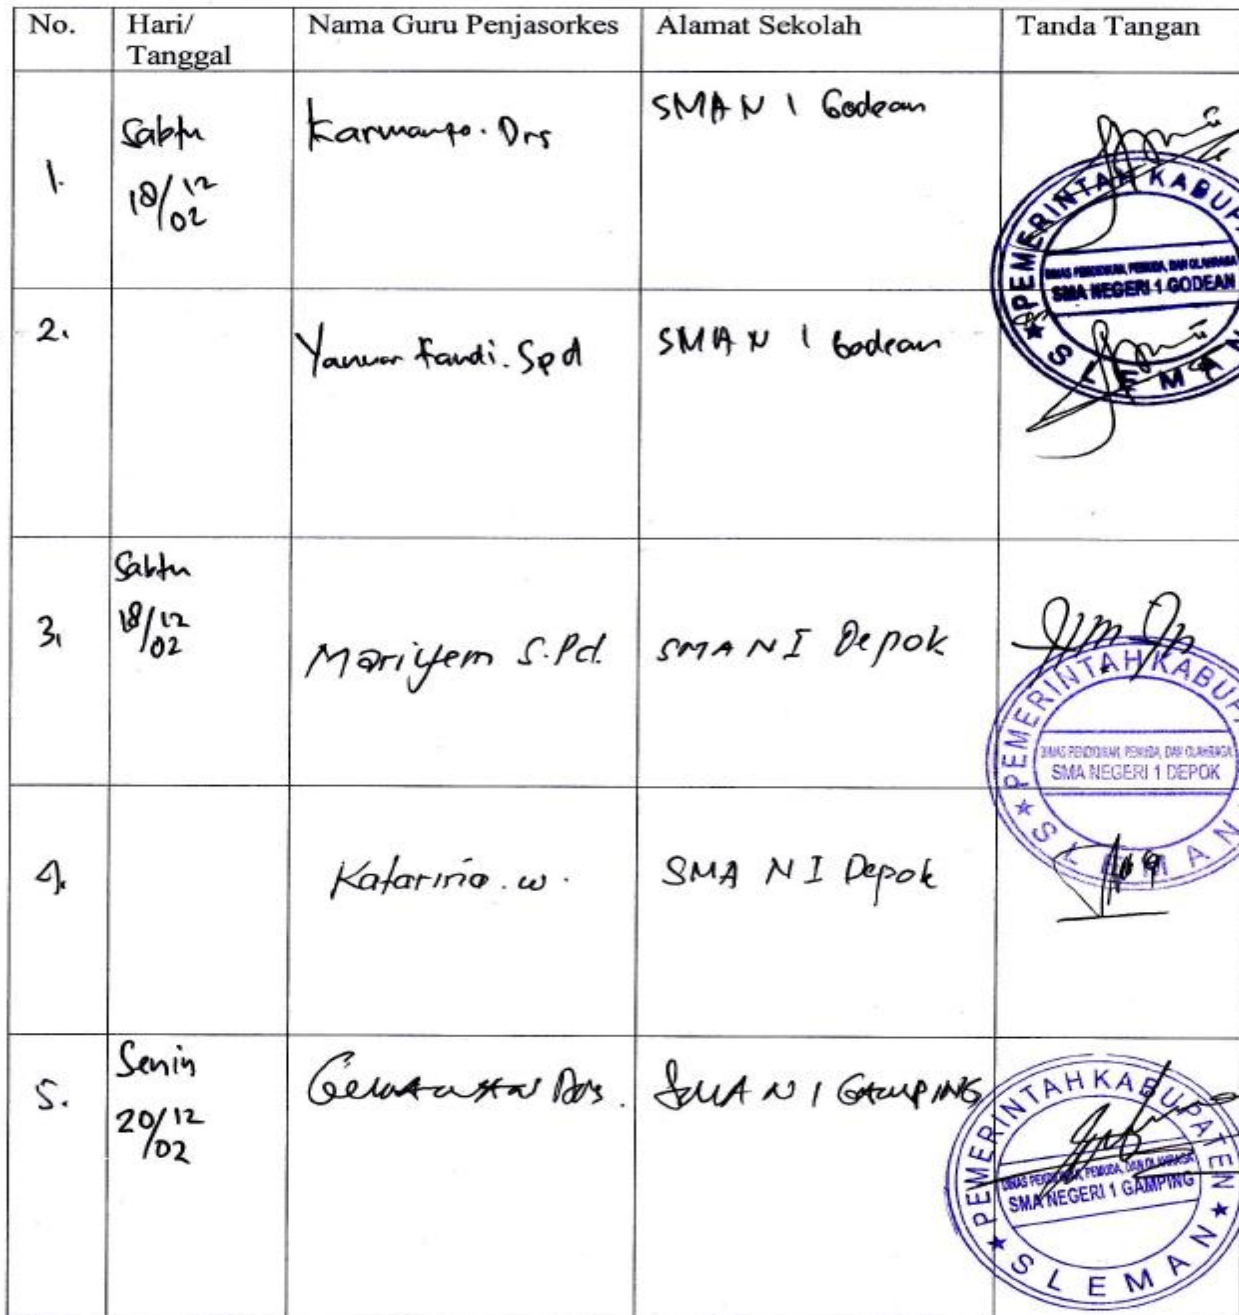 No. Hari/ Nama Guru Penjasorkes Alamat Sekolah Tanda Tangan
Tanggal
1. Sabtu Karmanto. Drs SMA N 1 Godean
18/12
/02
PEMERINTAH KABUPA
DINAS PENDIDIKAN, PEMUDA, DAN OLAHRAGA
SMA NEGERI 1 GODEAN
SLEMAN
2. Yanuar Fandi. Spd SMA N 1 Godean
Sabtu
3. 18/12 Mariyem S.Pd. SMA N I Depok
/02
PEMERINTAH KABUPA
DINAS PENDIDIKAN, PEMUDA, DAN OLAHRAGA
SMA NEGERI 1 DEPOK
SLEMAN
4. Katarina. w. SMA N I Depok
5. Senin Drs. SMA N 1 GAMPING
20/12
/02
PEMERINTAH KABUPATEN
DINAS PENDIDIKAN, PEMUDA, DAN OLAHRAGA
SMA NEGERI 1 GAMPING
SLEMAN